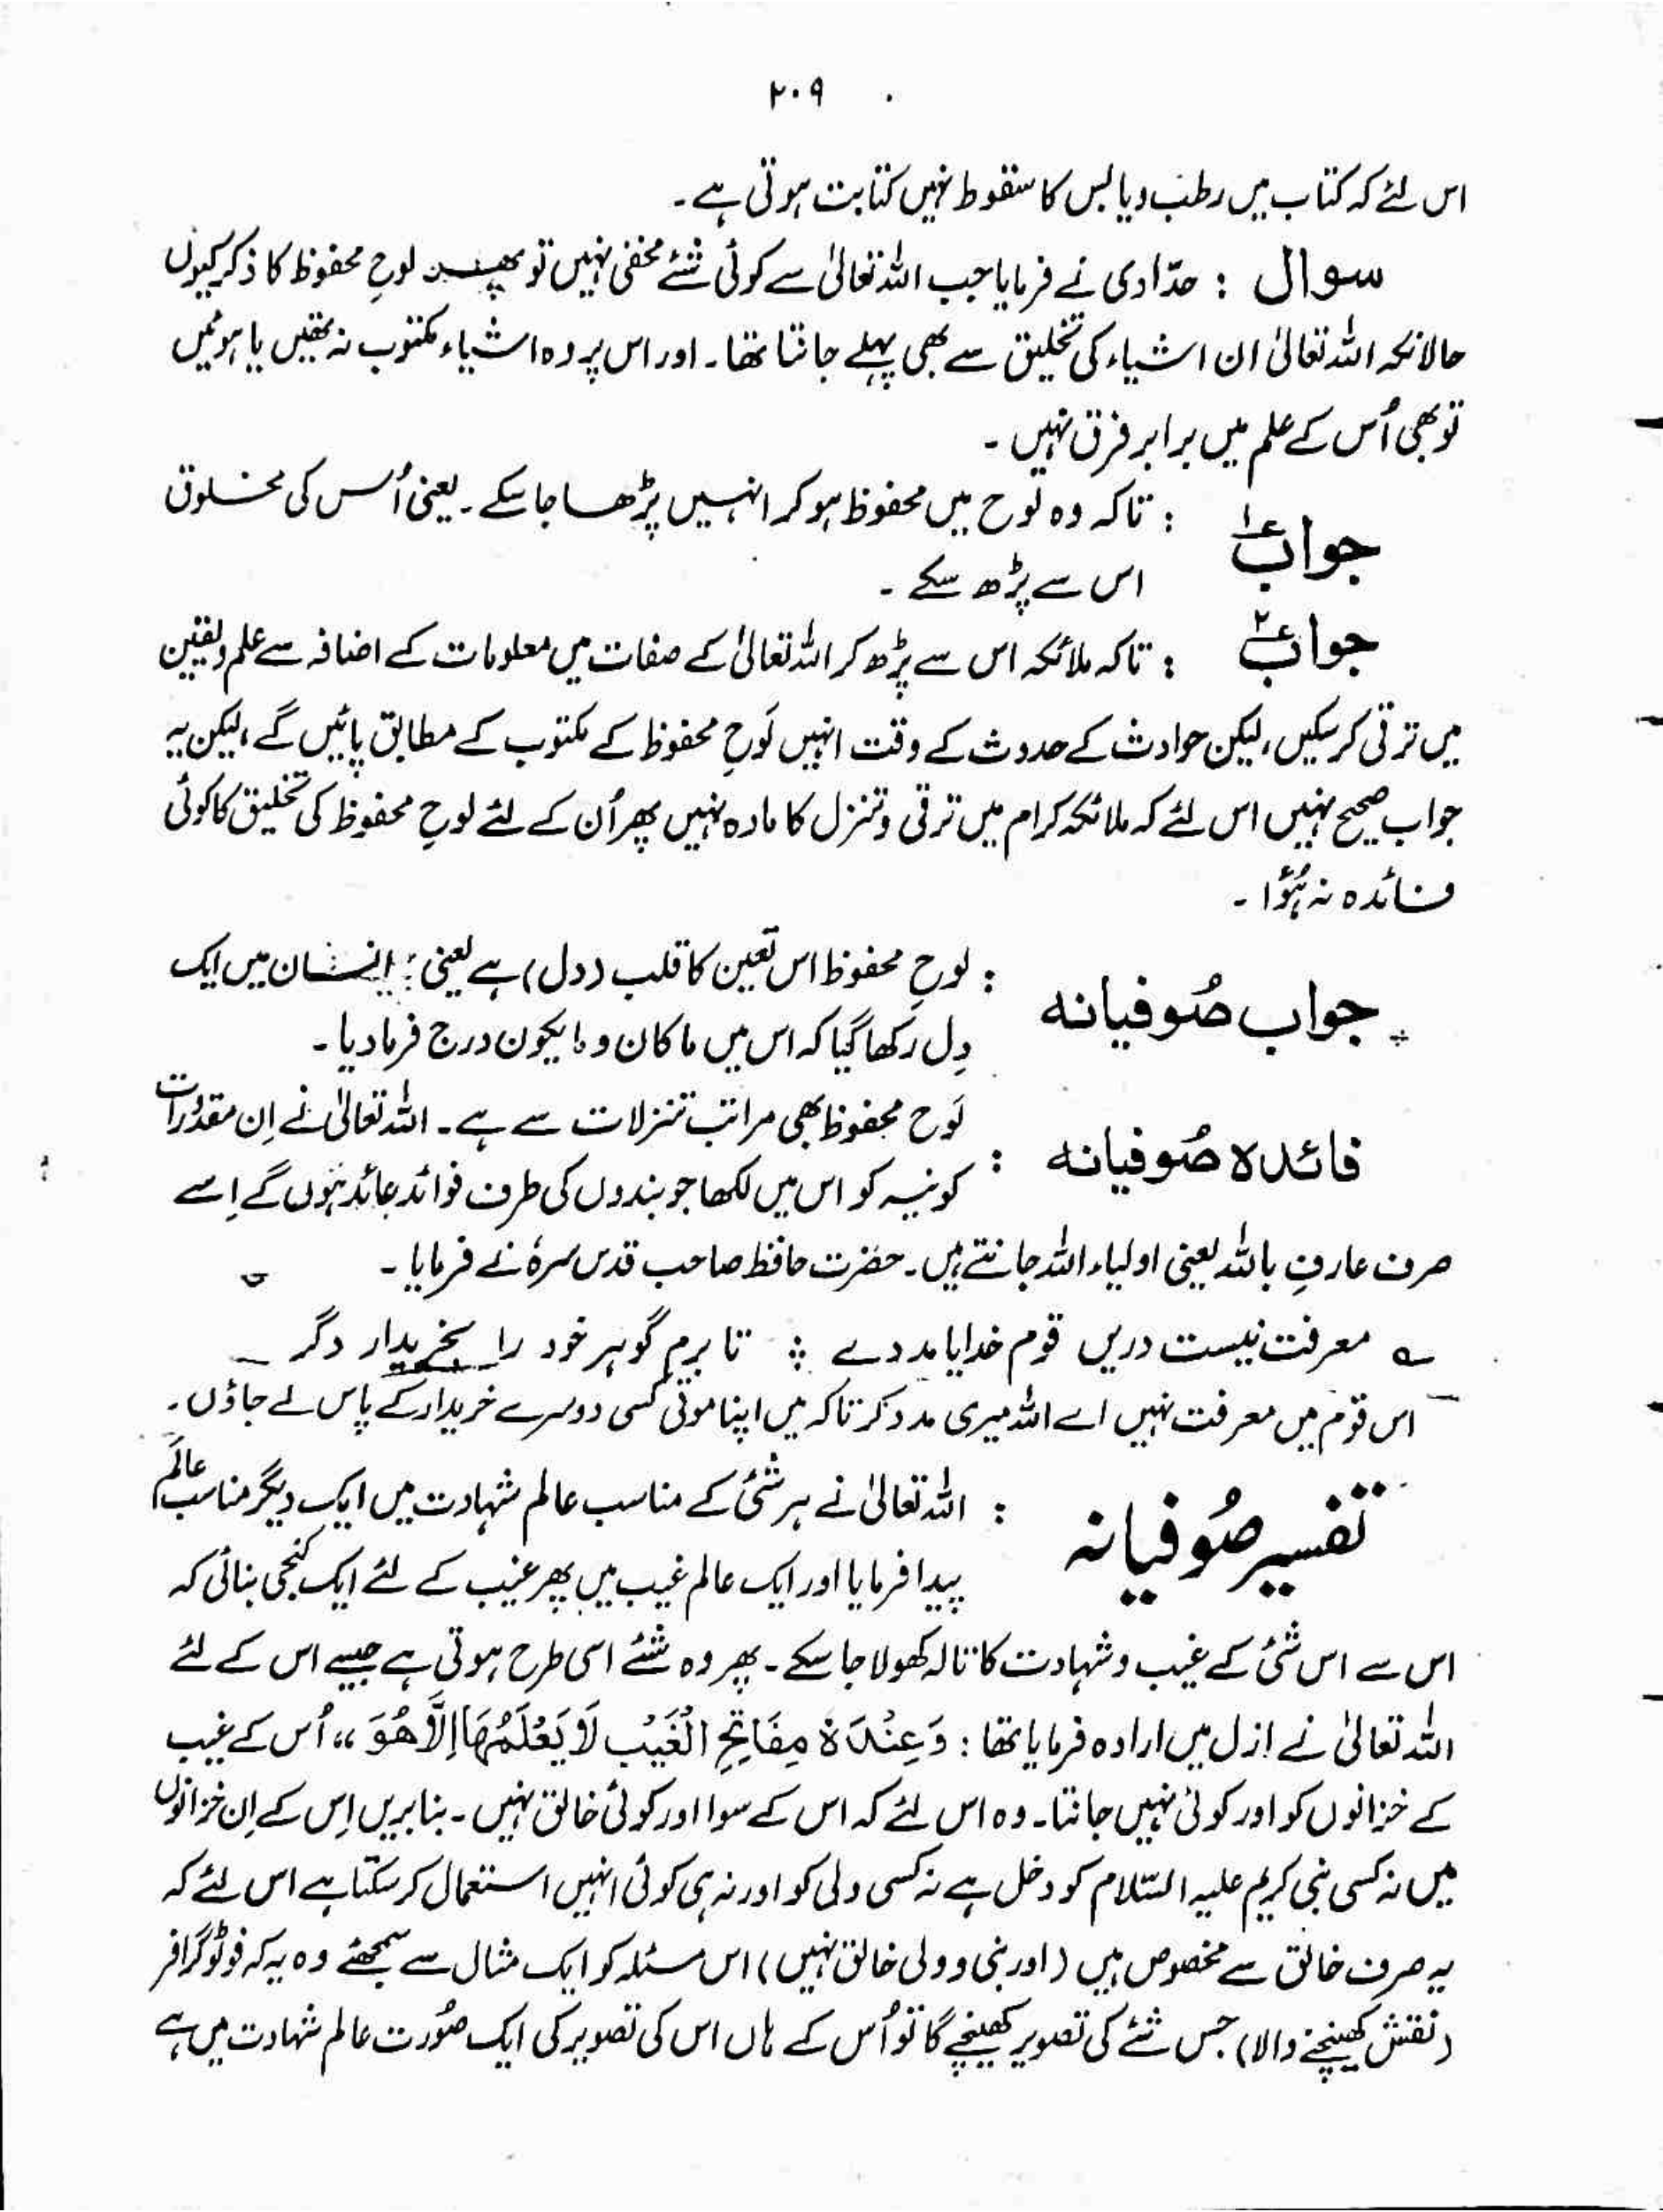 ۲۰۹
اس لئے کہ کتاب میں رطب و یابس کا سقوط نہیں کتابت ہوتی ہے۔
سوال : حدّادی نے فرمایا جب اللہ تعالیٰ سے کوئی شئے مخفی نہیں تو پھر لوحِ محفوظ کا ذکر کیوں
حالانکہ اللہ تعالیٰ ان اشیاء کی تخلیق سے بھی پہلے جانتا تھا۔ اور اس پر وہ اشیاء مکتوب نہ تھیں یا ہوئیں
تو بھی اُس کے علم میں برابر فرق نہیں ۔
جواب ۱ : تاکہ وہ لوح میں محفوظ ہو کر انہیں پڑھا جا سکے۔ یعنی اُس کی مخلوق
اس سے پڑھ سکے ۔
جواب ۲ : تاکہ ملائکہ اس سے پڑھ کر اللہ تعالیٰ کے صفات میں معلومات کے اضافہ سے علم و یقین
میں ترقی کر سکیں، لیکن حوادث کے حدوث کے وقت انہیں لَوحِ محفوظ کے مکتوب کے مطابق پائیں گے، لیکن یہ
جواب صحیح نہیں اس لئے کہ ملائکہ کرام میں ترقی و تنزل کا مادہ نہیں پھر اُن کے لئے لوحِ محفوظ کی تخلیق کا کوئی
فائدہ نہ ہُوا ۔
جواب صُوفیانہ : لوحِ محفوظ اس تعین کا قلب (دل) ہے یعنی : انسان میں ایک
دِل رکھا گیا کہ اس میں ما کان و ما یکون درج فرما دیا ۔
فائدہ صُوفیانہ : لَوح محفوظ بھی مراتب تنزلات سے ہے۔ اللہ تعالیٰ نے اِن مقدُورات
کونیہ کو اس میں لکھا جو بندوں کی طرف فوائد عائد ہوں گے اِسے
صرف عارفِ باللہ یعنی اولیاء اللہ جانتے ہیں۔ حضرت حافظ صاحب قدس سرہٗ نے فرمایا ۔
؎ معرفت نیست دریں قوم خدایا مددے ؞ تا برم گوہر خود را بخریدار دگر
اس قوم میں معرفت نہیں اے اللہ میری مدد کر تاکہ میں اپنا موتی کسی دوسرے خریدار کے پاس لے جاؤں۔
تفسیر صُوفیانہ : اللہ تعالیٰ نے ہر شئ کے مناسب عالم شہادت میں ایک دیگر مناسب عالَم
پیدا فرمایا اور ایک عالم غیب میں پھر غیب کے لئے ایک کنجی بنائی کہ
اس سے اس شئ کے غیب و شہادت کا تالہ کھولا جا سکے۔ پھر وہ شئے اسی طرح ہوتی ہے جیسے اس کے لئے
اللہ تعالیٰ نے ازل میں ارادہ فرمایا تھا : وَعِنْدَهٗ مِفَاتِحُ الْغَيْبِ لَا يَعْلَمُهَا اِلَّا هُوَ ،، اُس کے غیب
کے خزانوں کو اور کوئی نہیں جانتا۔ وہ اس لئے کہ اس کے سوا اور کوئی خالق نہیں ۔ بنا بریں اِس کے اِن خزانوں
میں نہ کسی نبی کریم علیہ السّلام کو دخل ہے نہ کسی ولی کو اور نہ ہی کوئی انہیں استعمال کر سکتا ہے اس لئے کہ
یہ صرف خالق سے مخصوص ہیں (اور نبی و ولی خالق نہیں) اس مسئلہ کو ایک مثال سے سمجھئے وہ یہ کہ فوٹو گرافر
(نقش کھینچنے والا) جس شئے کی تصویر کھینچے گا تو اُس کے ہاں اس کی تصویر کی ایک صُورت عالم شہادت میں ہے